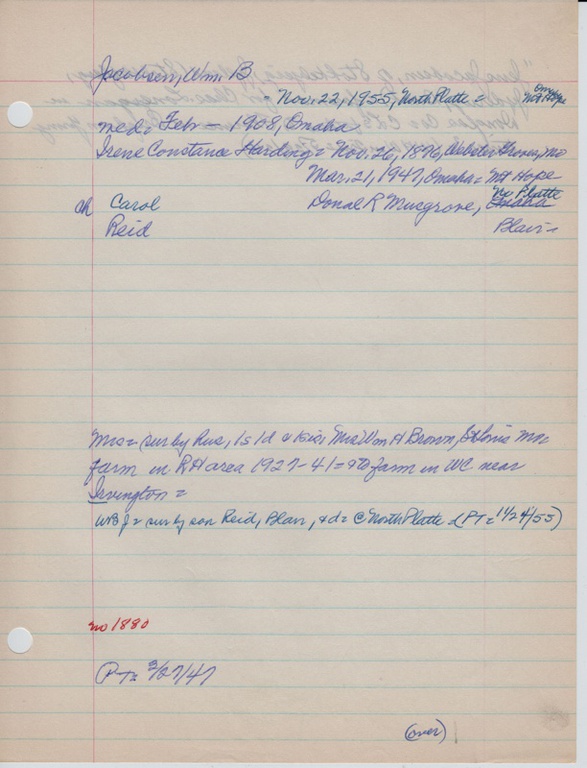 Jacobsen, Wm. B
Omaha
= Nov. 22, 1955, North Platte = Mt Hope
med: Feb - 1908, Omaha
Irene Constance Harding = Nov. 26, 1876, Webster Groves, Mo
Mar. 21, 1947, Omaha = Mt Hope
No Platte
ch Carol Donal R Musgrove, Omaha
Reid Blair =
Mrs = sur by Hus, 1s 1d & sis, Mrs Wm H Brown, St Louis Mo
farm in RH area 1927-41 = to farm in WC near
Irvington =
WBJ = sur by son Reid, Blair, & d = @ North Platte = (PT = 11/24/55)
no 1880
PT = 3/27/47
(over)